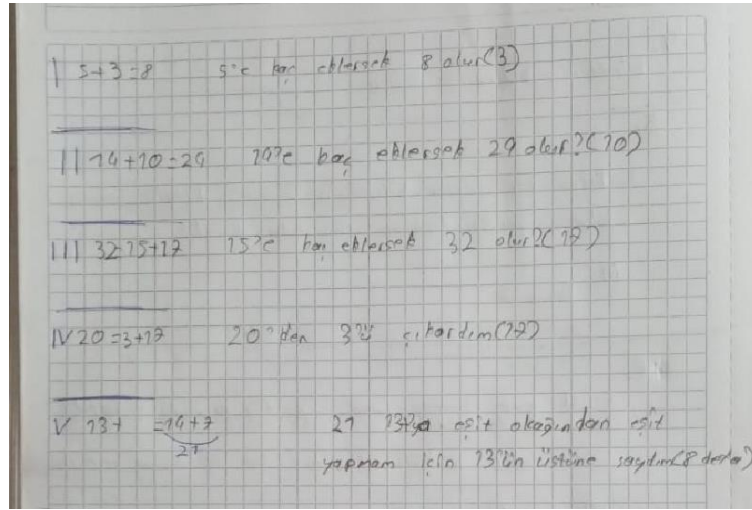 I 5+3=8 5'e kaç eklersek 8 olur(3)
II 14+10=24 14'e kaç eklersek 24 olur?(10)
III 32=15+17 15'e kaç eklersek 32 olur?(17)
IV 20=3+17 20'den 3'ü çıkardım(17)
V 13+ =14+7 21 13+'ya eşit olacağından eşit
21 yapmam için 13'ün üstüne saydım(8 defa)